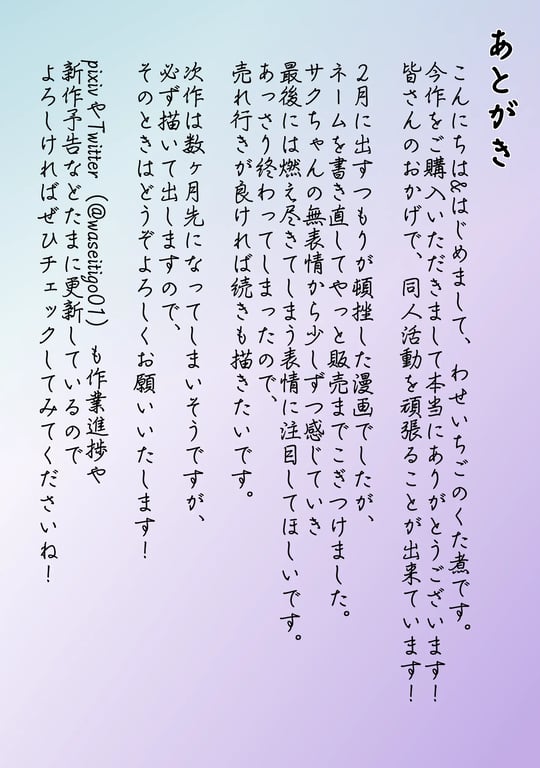 あとがき
こんにちは&はじめまして、わせいちごのくた煮です。
今作をご購入いただきまして本当にありがとうございます！
皆さんのおかげで、同人活動を頑張ることが出来ています！
２月に出すつもりが頓挫した漫画でしたが、
ネームを書き直してやっと販売までこぎつけました。
サクちゃんの無表情から少しずつ感じていき
最後には燃え尽きてしまう表情に注目してほしいです。
あっさり終わってしまったので、
売れ行きが良ければ続きも描きたいです。
次作は数ヶ月先になってしまいそうですが、
必ず描いて出しますので、
そのときはどうぞよろしくお願いいたします！
pixivやTwitter（@waseitigo01）も作業進捗や
新作予告などたまに更新しているので
よろしければぜひチェックしてみてくださいね！